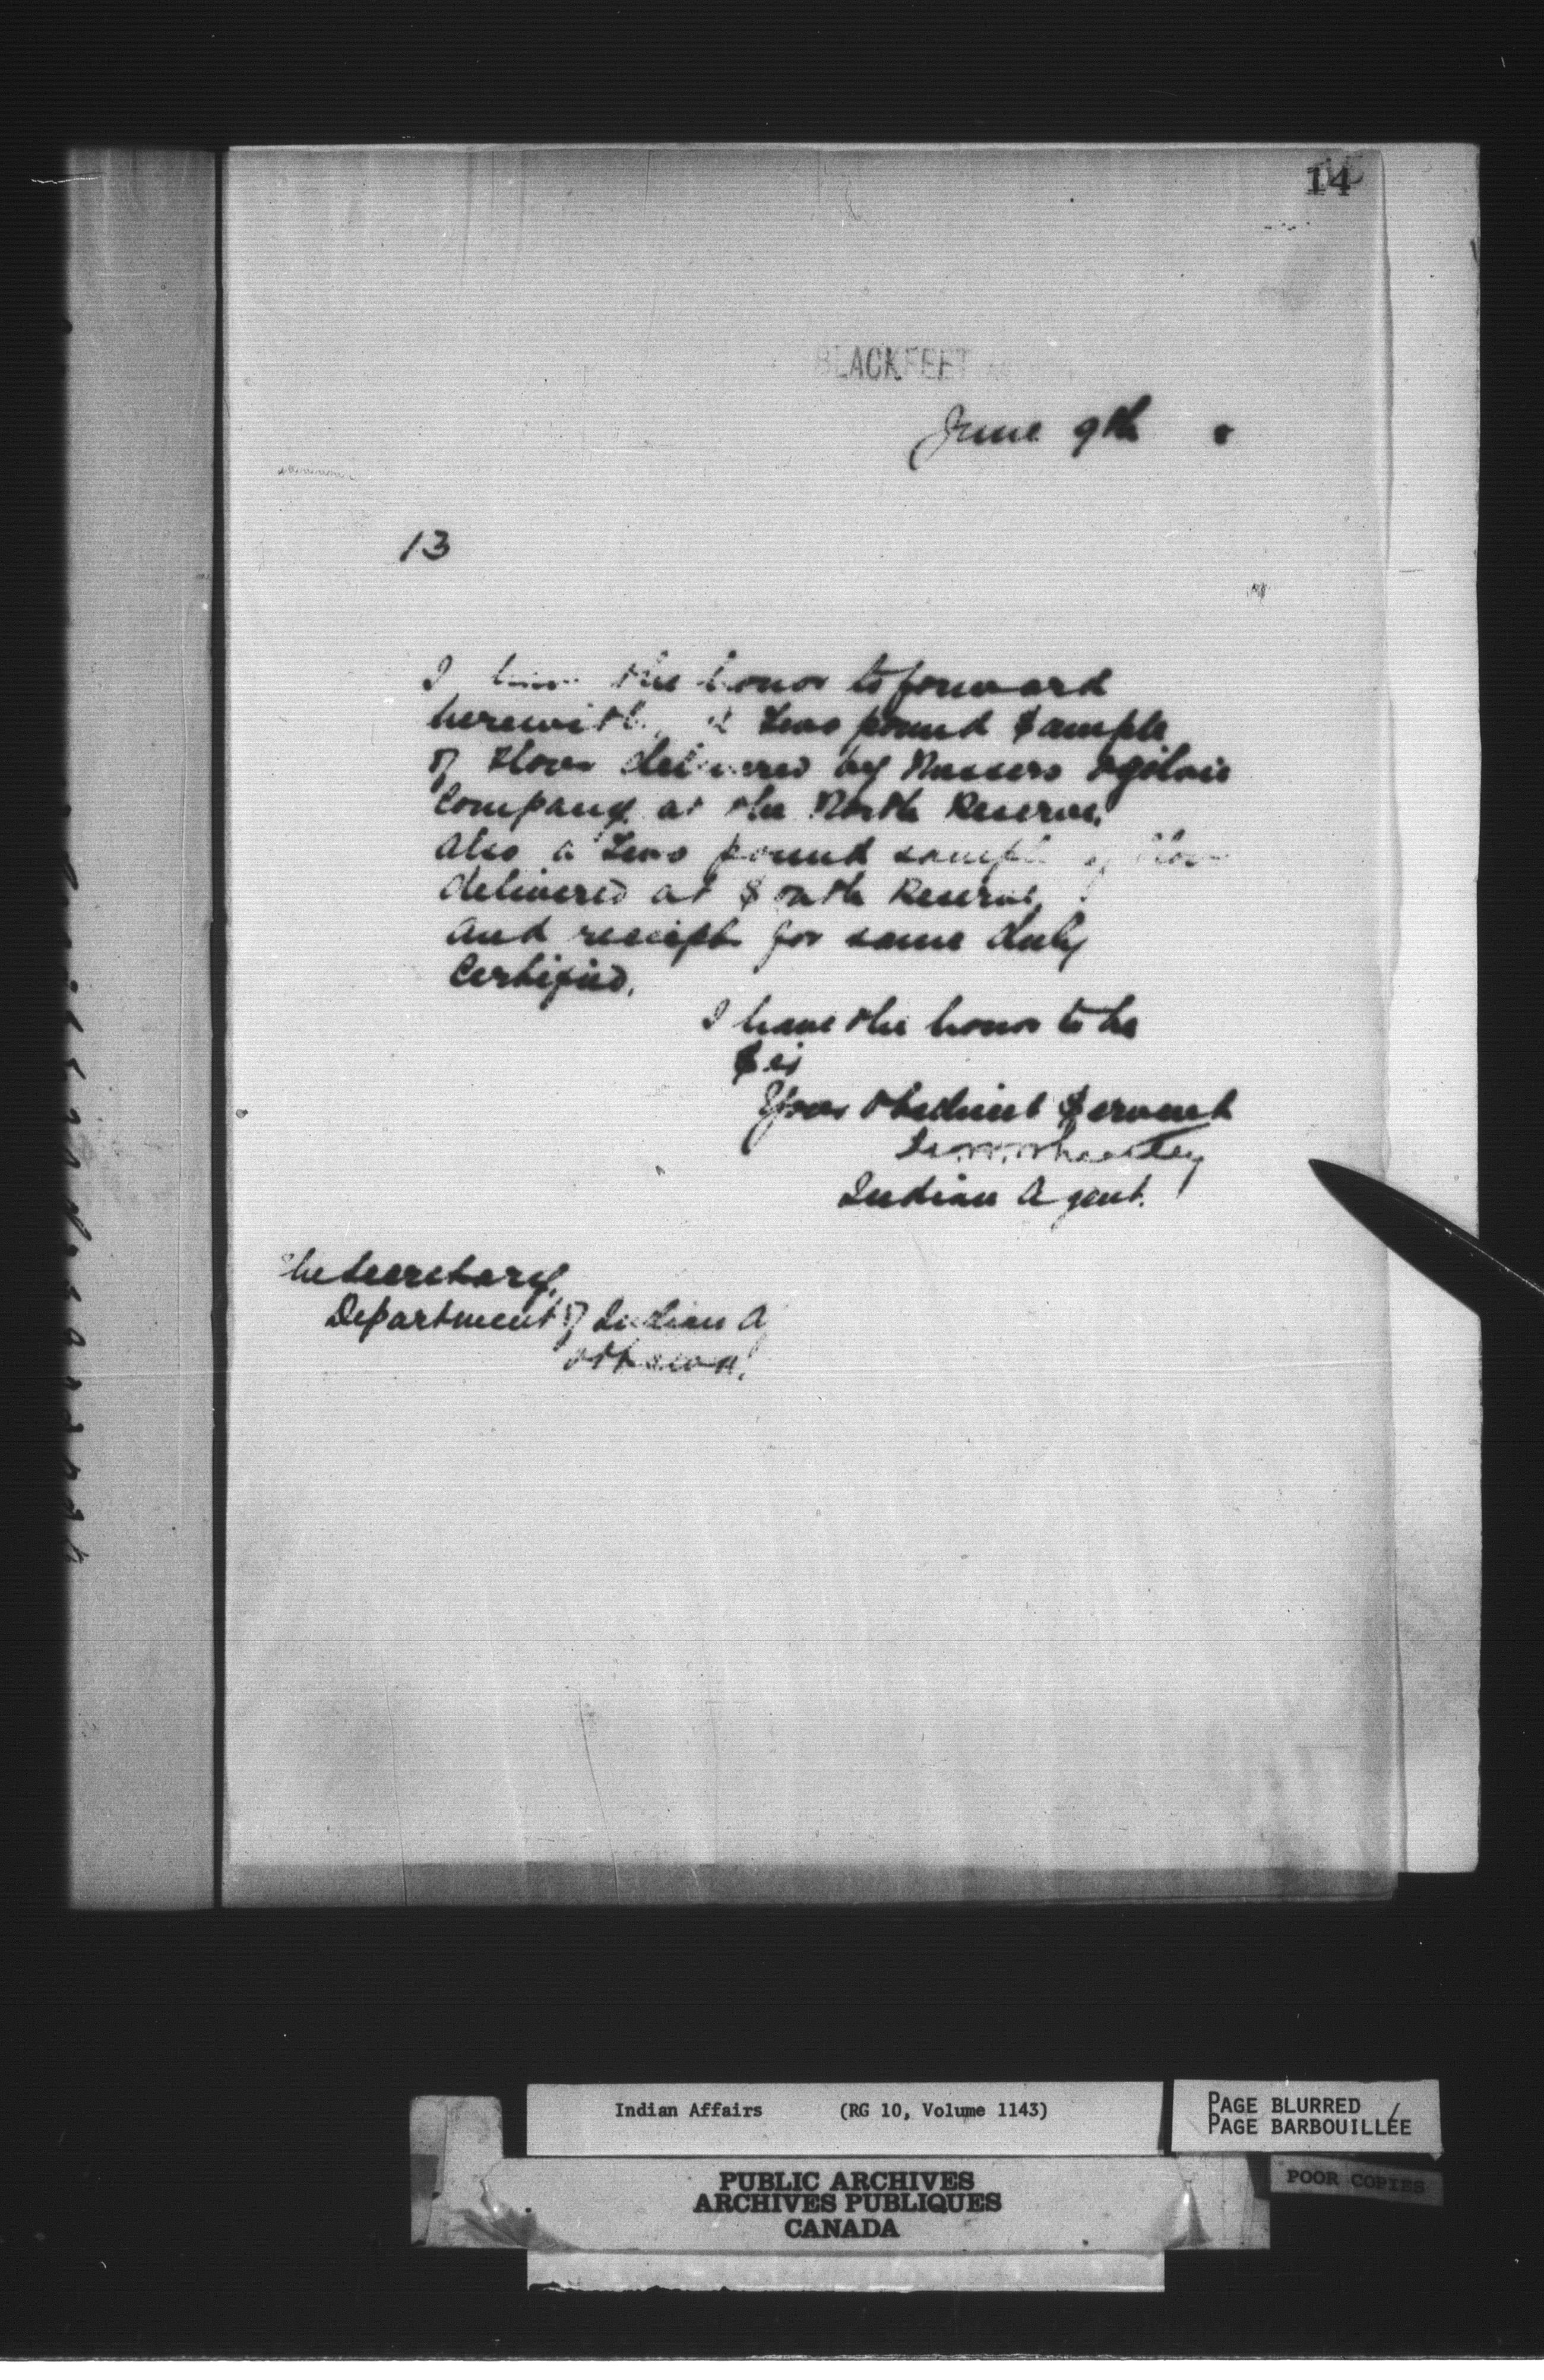 14
BLACKFEET
June 9th
13
I have the honor to forward
herewith, a two pound Sample
of Flour delivered by Messers Ogilvie
Company, at the North Reserve,
also a two pound sample of Flour
delivered at South Reserve,
and receipt for same duly
Certified.
I have the honor to be
Sir
Your Obedient Servant
Wheatley
Indian Agent.
The Secretary,
Department of Indian A
Ottawa.
Indian Affairs (RG 10, Volume 1143)
PAGE BLURRED
PAGE BARBOUILLÉE
POOR COPIES
PUBLIC ARCHIVES
ARCHIVES PUBLIQUES
CANADA